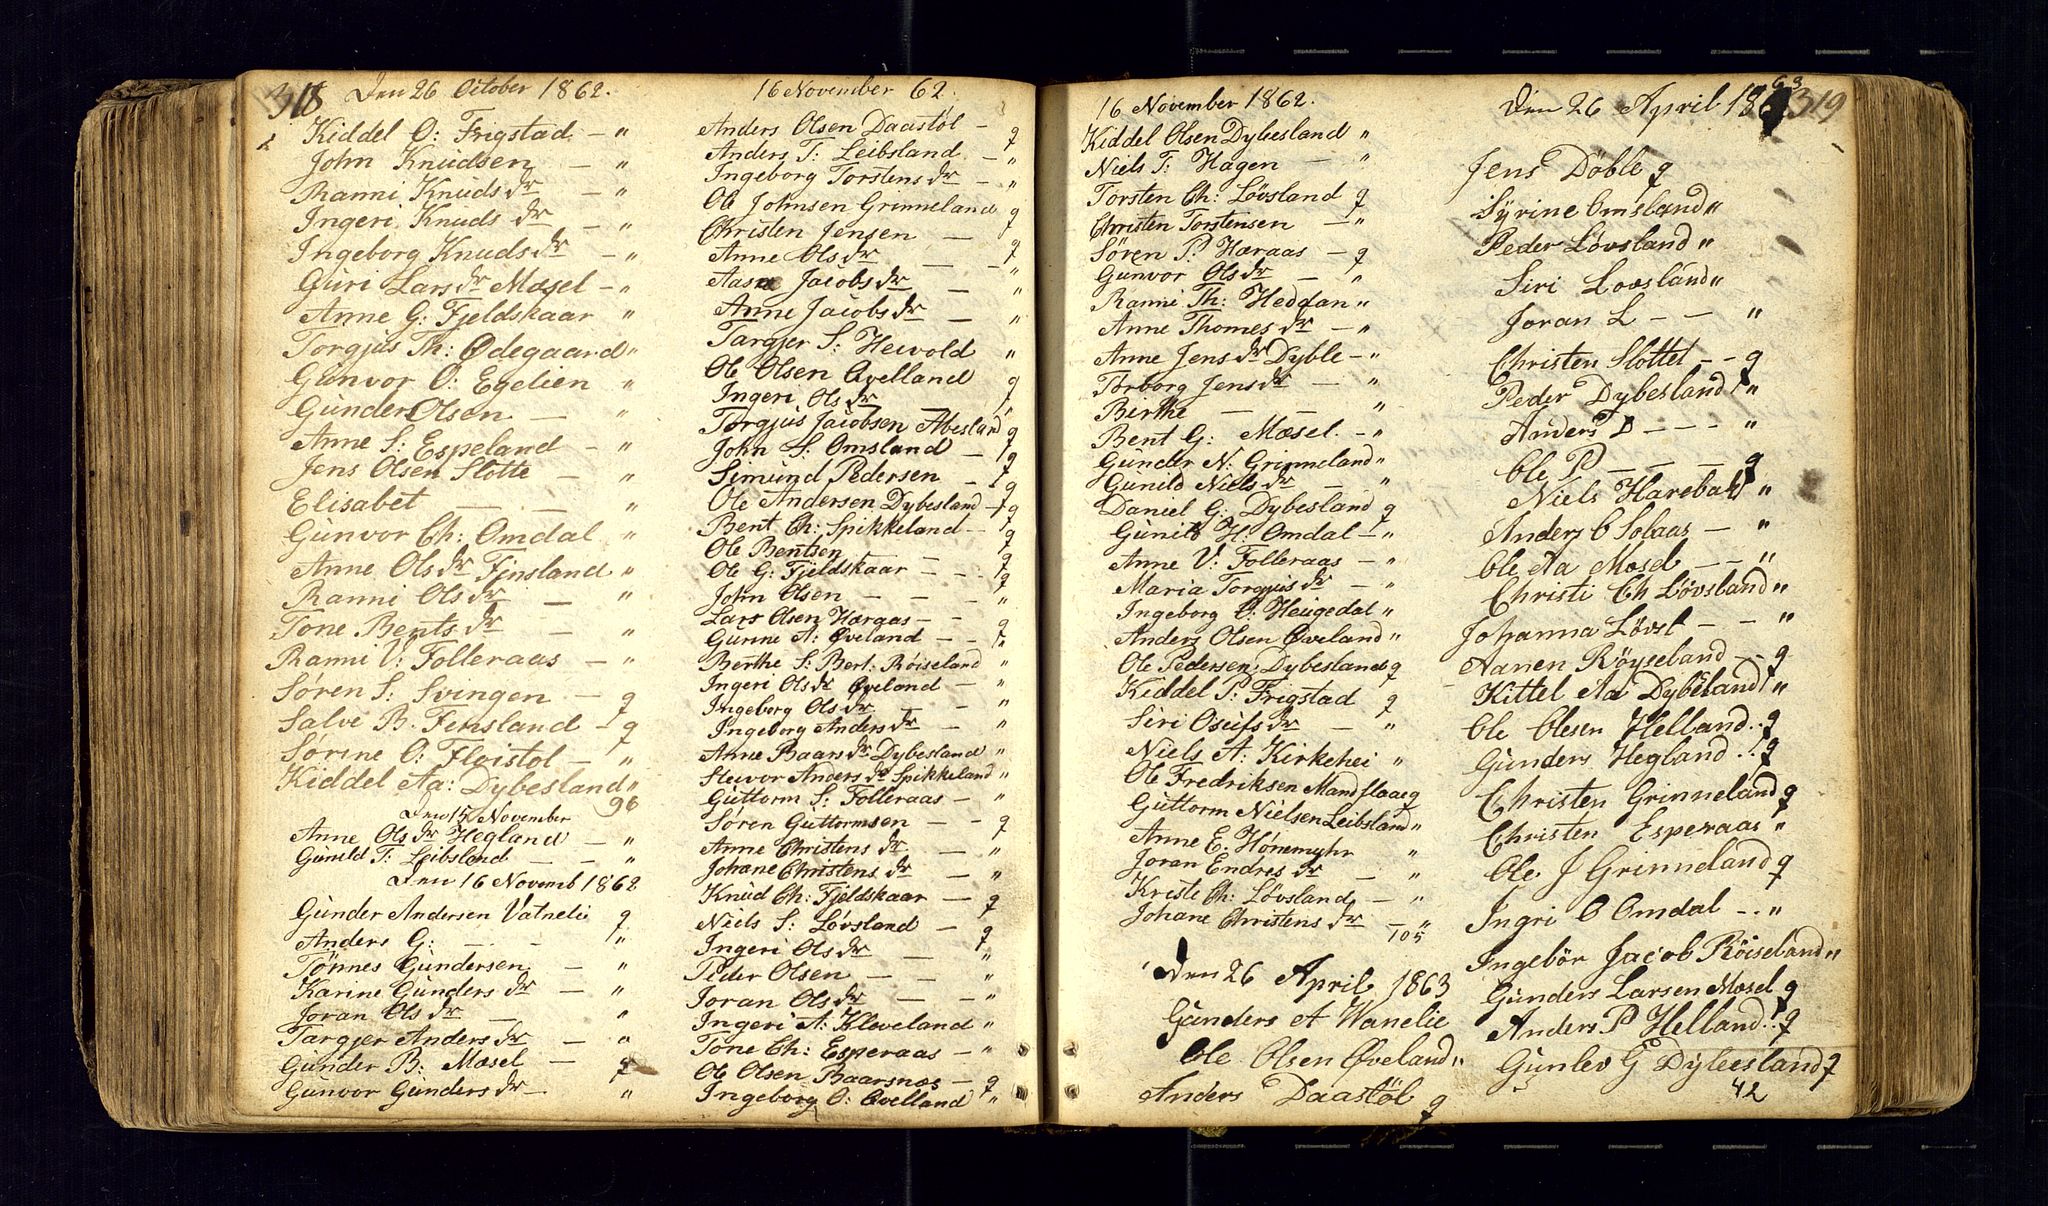 318 Den 26 October 1862.
Kiddel O: Frigstad — "
John Knudsen — "
Ranni Knuds dr — "
Ingeri Knuds dr — "
Ingeborg Knuds dr — "
Guri Lars dr Mæsel — "
Anne G: Fjeldskaar "
Torgjus Th: Ødegaard "
Gunvor O: Egelien "
Gunder Olsen — "
Anne S: Espeland — "
Jens Olsen Slotte "
Elisabet — — "
Gunvor Ch: Omdal "
Anne Ols dr Finsland "
Ranni Ols dr — "
Tone Bents dr — "
Ranni V: Folleraas — "
Søren S: Svingen — g
Salve B. Finsland — g
Sørine O: Fløistøl — "
Kiddel Aa: Dybesland "
96
Den 15 November
Anne Ols dr Hegland — "
Gunild T: Leibsland — — "
Den 16 Novemb 1862
Gunder Andersen Vatnelie g
Anders G: — — "
Tönnes Gundersen — "
Karine Gunders dr — "
Joran Ols dr — "
Targjer Anders dr — "
Gunder B: Mæsel — g
Gunvor Gunders dr — "
16 November 62.
Anders Olsen Daastöl — g
Anders T: Leibsland — "
Ingeborg Torstens dr — "
Ole Johnsen Grinneland g
Christen Jensen — g
Anne Ols dr — — "
Aasne Jacobs dr — "
Anne Jacobs dr — "
Targjer S: Hewold "
Ole Olsen Øvelland g
Ingeri Ols dr — "
Torgjus Jacobsen Abesland g
John S: Omsland — g
Simund Pedersen — g
Ole Andersen Dybesland — g
Bent Ch: Spikkeland — g
Ole Bentsen — — g
Ole G: Fjeldskaar — — g
John Olsen — — — "
Lars Olsen Hæraas — — g
Gunne A: Øveland — — "
Berthe S: Bert: Röiseland "
Ingeri Ols dr Øveland — "
Ingeborg Ols dr — "
Ingeborg Anders dr — "
Anne Baars dr Dybesland "
Sleivor Anders dr Spikkeland "
Guttorm S: Folleraas — "
Søren Guttormsen — — g
Anne Christens dr — "
Johane Christens dr — "
Knud Ch: Fjeldskaar — g
Niels S: Løvsland — g
Ingeri Ols dr — "
Peder Olsen — — "
Joran Ols dr — — "
Ingeri A: Kleveland "
Tone Ch: Esperaas — "
Ole Olsen Baarsnæs — g
Ingeborg O: Øvelland "
16 November 1862.
Kiddel Olsen Dybesland "
Niels T: Hagen — "
Torsten Ch: Løvsland g
Christen Torstensen — "
Søren P: Hæraas — g
Gunvor Ols dr — "
Ranni Th: "
Anne Thomes dr — "
Anne Jens dr Dyble — "
Torborg Jens dr — "
Birthe — — "
Bent G: Mæsel. — "
Gunder N: Grinneland "
Gunild Niels dr — "
Daniel G: Dybesland g
Gunild H: Omdal — "
Anne V: Folleraas — "
Maria Torgjus dr — "
Ingeborg O: Heugedal "
Anders Olsen Øveland "
Ole Pedersen Dybesland g
Kiddel P: Frigstad g
Siri Oseifs dr — "
Niels A: Kirkehei "
Ole Fredriksen Mandflaae g
Guttorm Nielsen Leibsland "
Anne E. Hønemyhr "
Joran Endres dr — "
Kristi Ch: Løvsland — "
Johane Christens dr — "
105
Den 26 April 1863
Gunders A Wanelie
Ole Olsen Øveland "
Anders Daastöl g
Den 26 April 1863 319
Jens Döble g
Syrine Omsland "
Peder Lövsland "
Siri Lovsland "
Joran L — — "
Christen Slottel — — g
Peder Dybesland "
Anders D — — — "
Ole P — — — g
Niels "
Anders O Solaas — "
Ole Aa Mæsel — — "
Christi Ch Lövsland "
Johanna Lövsl — — "
Aanen Röyseland — — g
Kittel Aa Dybesland "
Ole Olesen Helland.. g
Gunders Hegland.. g
Christen Grinneland g
Christen Esperaas "
Ole J Grinneland g
Ingri O Omdal — . "
Ingebör Jacob Röiseland "
Gunders Larsen Mæsel g
Anders P Helland.. g
Gunlev G Dybesland g
42